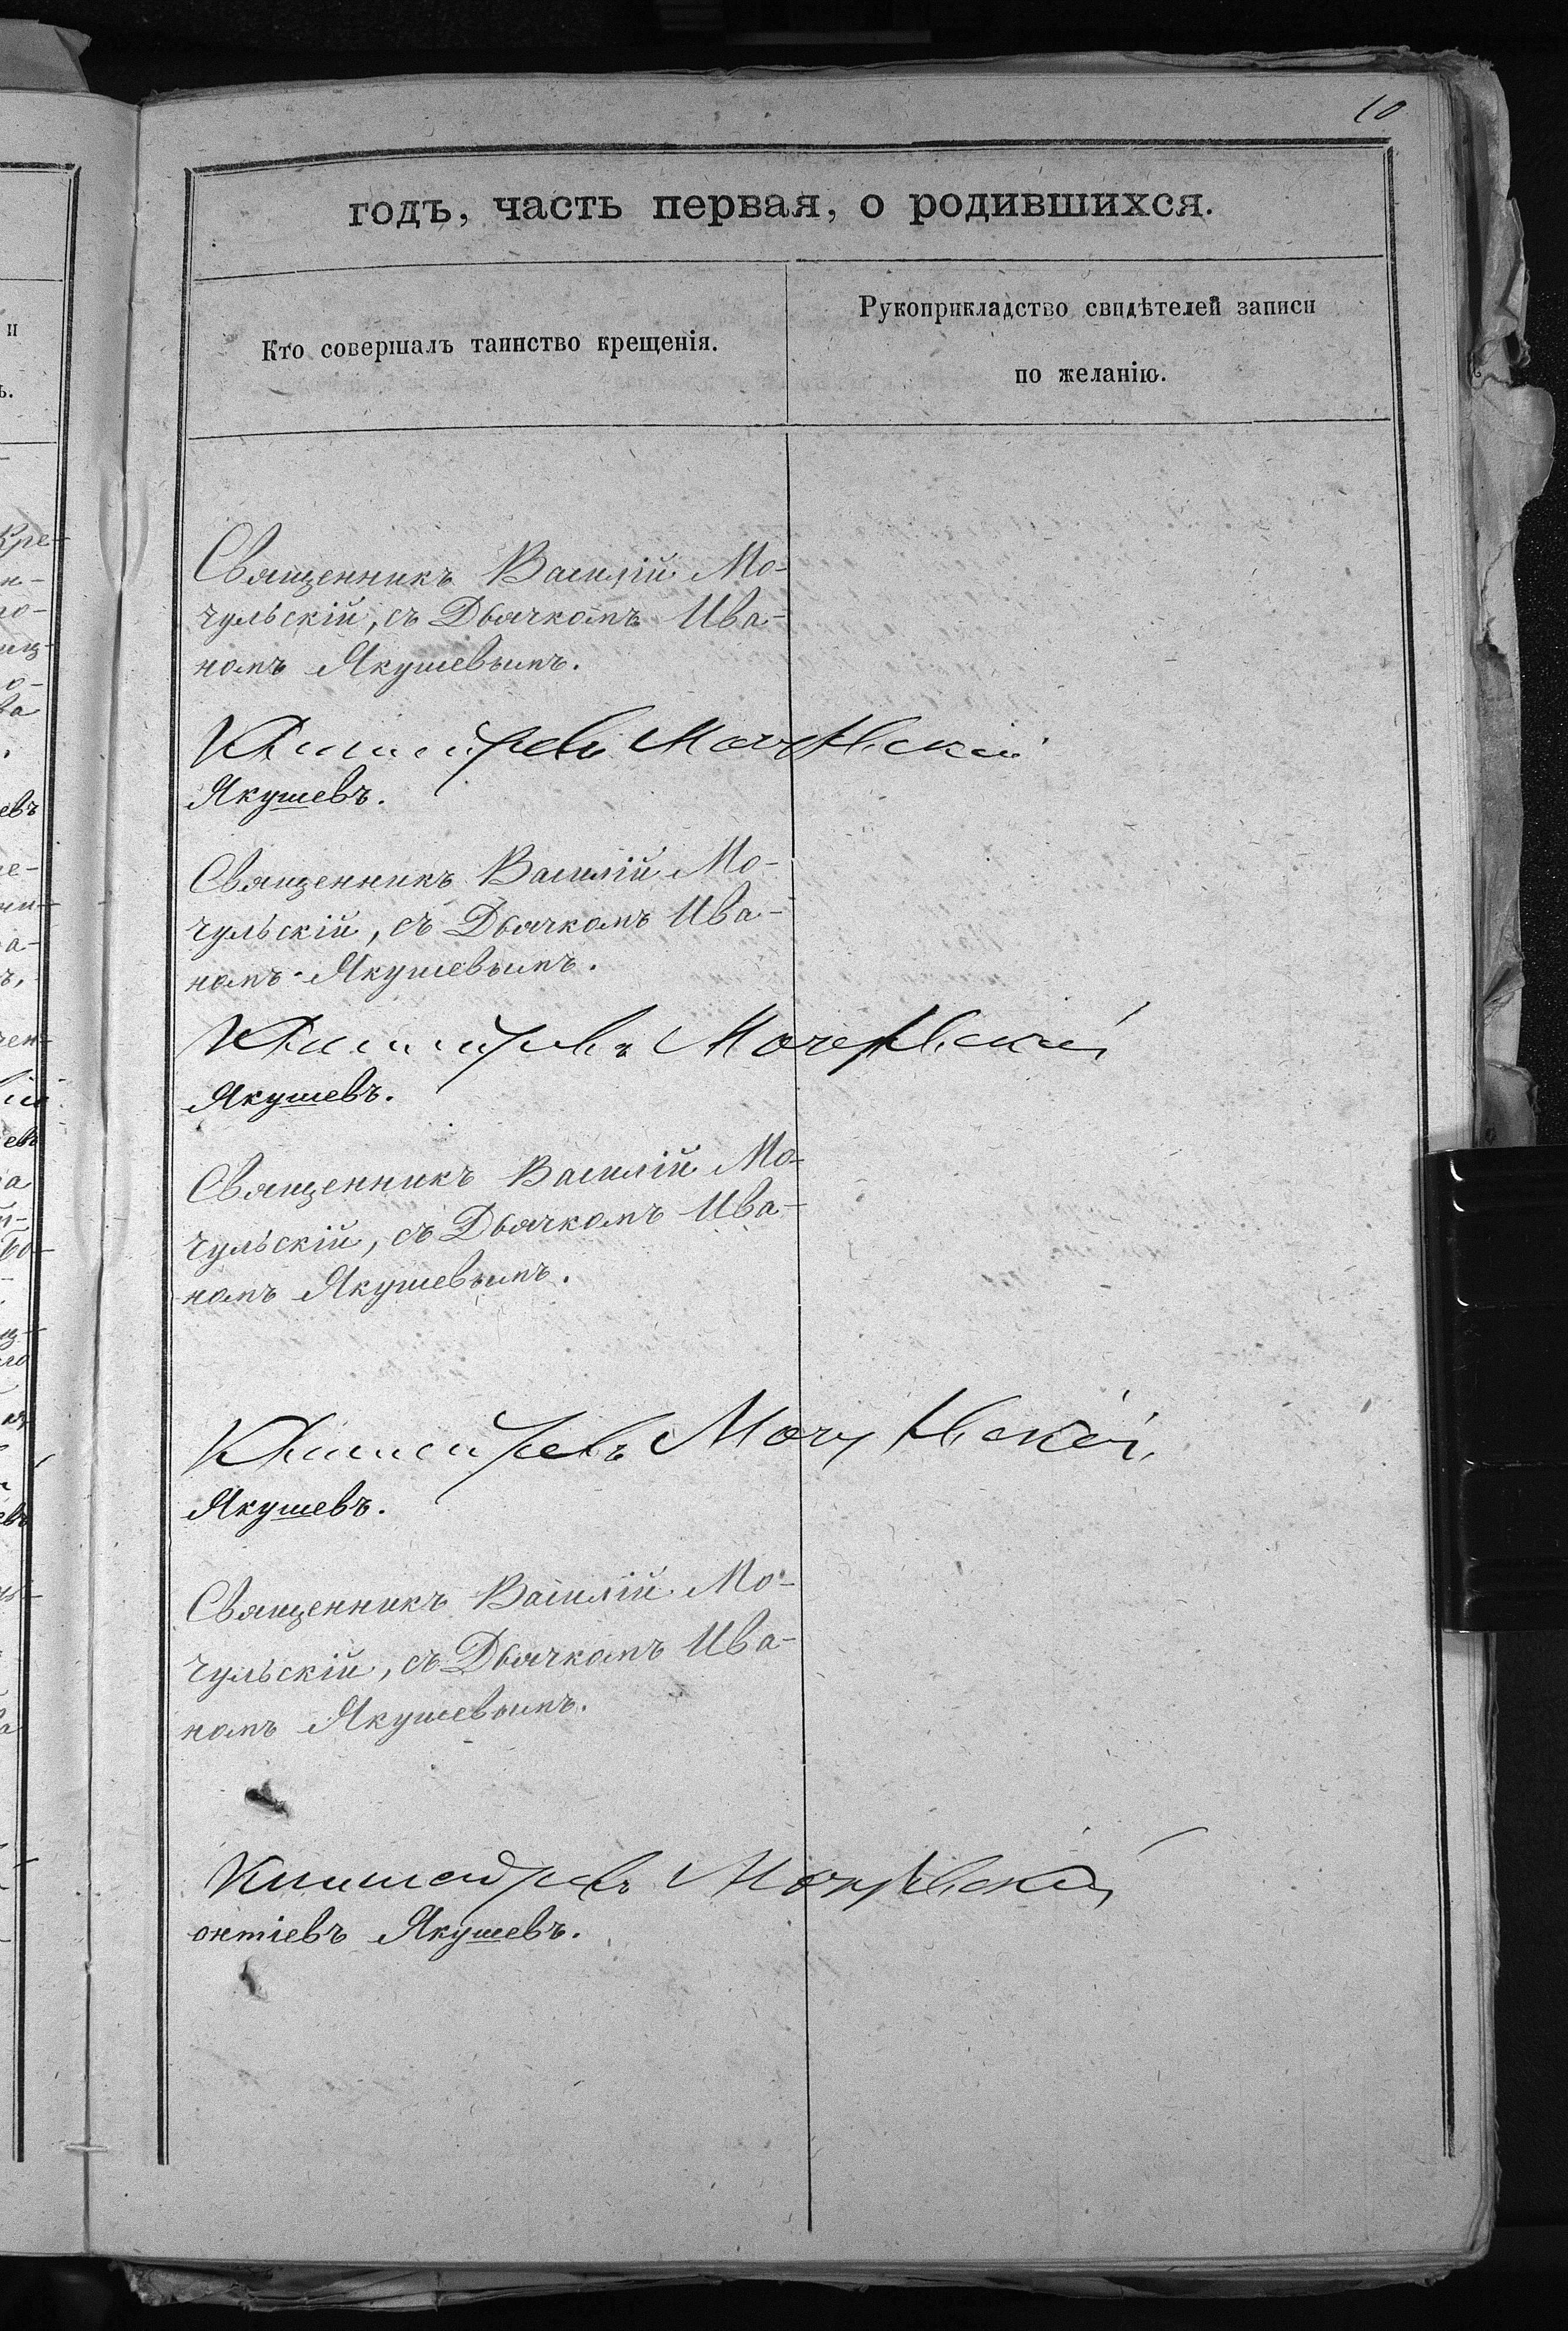 10
годъ, часть первая, о родившихся.
Кто совершалъ таинство крещенія.
Рукоприкладство свидѣтелей записи
по желанію.
Священникъ Василій Мо-
чульскій, съ Дьячкомъ Ива-
номъ Якушевымъ.
Мочульскій
Якушевъ.
Священникъ Василій Мо-
чульскій, съ Дьячкомъ Ива-
номъ Якушевымъ.
Мочульскій
Якушевъ.
Священникъ Василій Мо-
чульскій, съ Дьячкомъ Ива-
номъ Якушевымъ.
Мочульскій
Якушевъ.
Священникъ Василій Мо-
чульскій, съ Дьячкомъ Ива-
номъ Якушевымъ.
Мочульскій
онтіевъ Якушевъ.